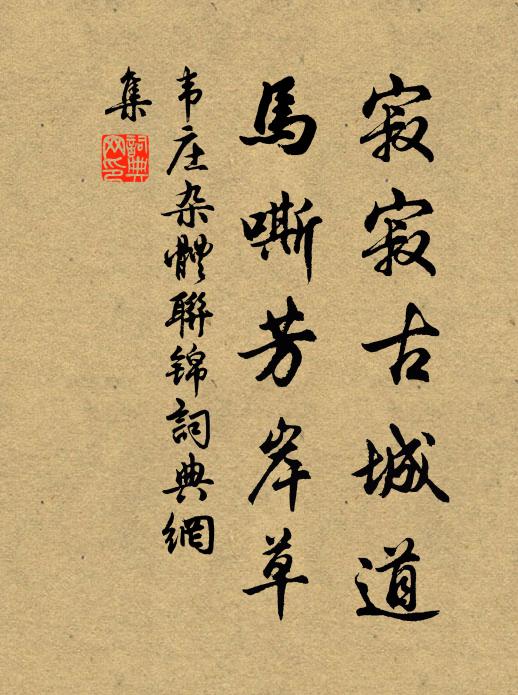 寂寂古城道
馬嘶芳岸草
韦庄杂體聯锦詞典網
集
詞典網印